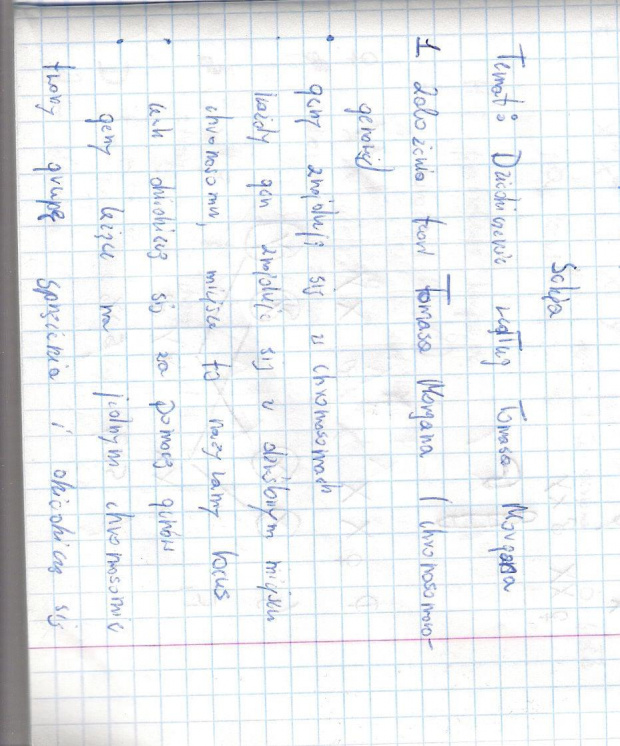 Sekja
Temat: Dziedziczenie według Tomasa Morgana
1. Założenia teori Tomasa Morgana / chromosomowa-
genowej
• geny znajdują się w chromosomach
każdy gen znajduje się w określonym miejscu
chromosomu, miejsce to nazywamy locus
• cech dziedziczą się za pomocą genów
• geny leżące na jednym chromosomie
tworzą grupę sprzężenia i dziedziczą się